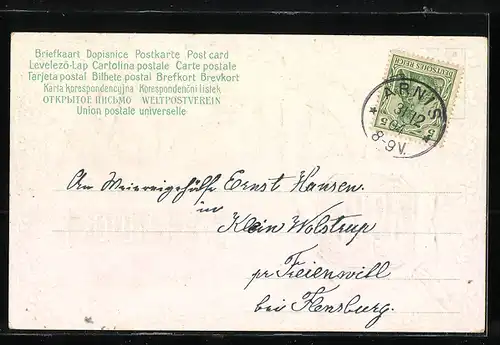 Briefkaart Dopisnice Postkarte Post card
Levelező-Lap Cartolina postale Carte postale
Tarjeta postal Bilhete postal Brefkort Brevkort
Karta korespondencyjna Korespondenční lístek
ОТКРЫТОЕ ПИСЬМО WELTPOSTVEREIN
Union postale universelle
DEUTSCHES REICH
5 5
ARNIS
31 12
04
8-9V.
An Meiereigehülfe Ernst Hansen.
in
Klein Wolstrup
pr Freienwill
bei Flensburg.